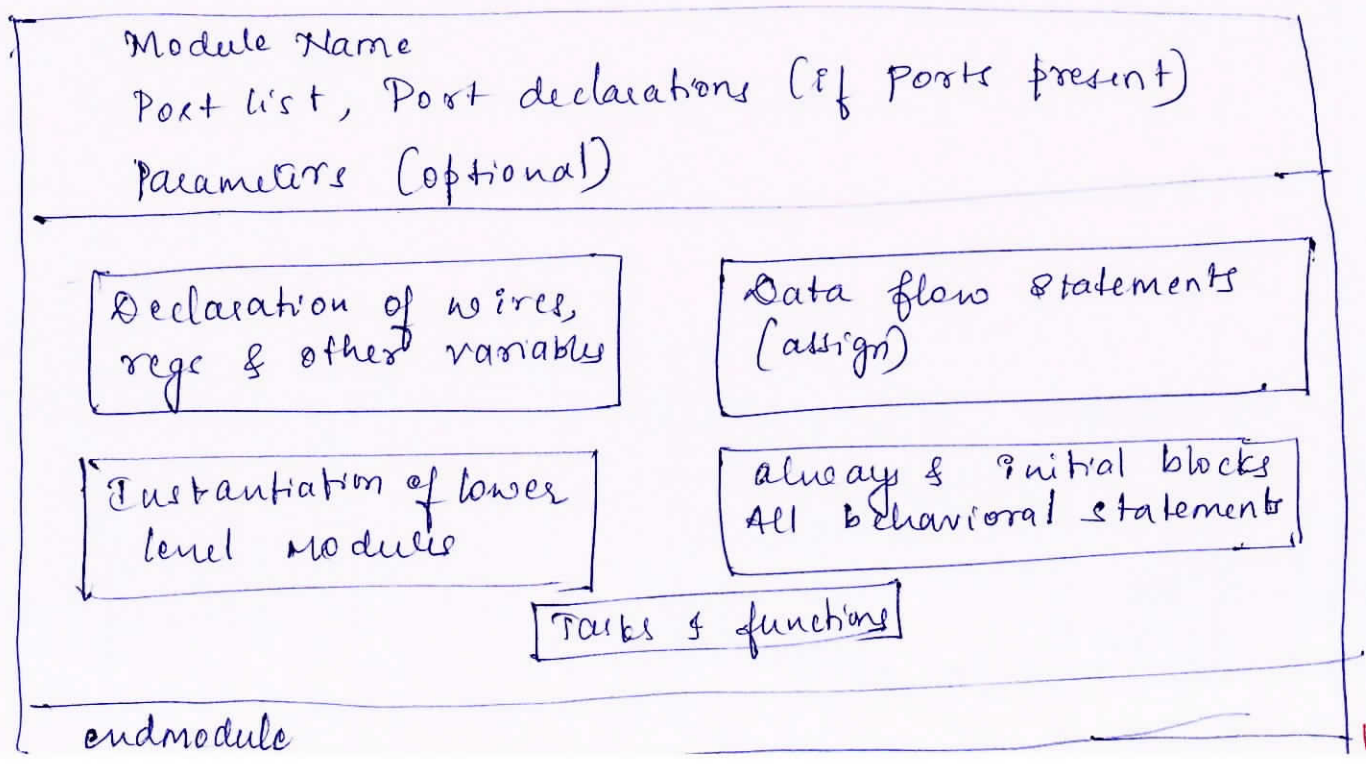 Module Name
Port list, Port declarations (if ports present)
Parameters (optional)
Declaration of wires,
regs & other variables
Data flow statements
(assign)
Instantiation of lower
level modules
always & initial blocks
All behavioral statements
Tasks & functions
endmodule